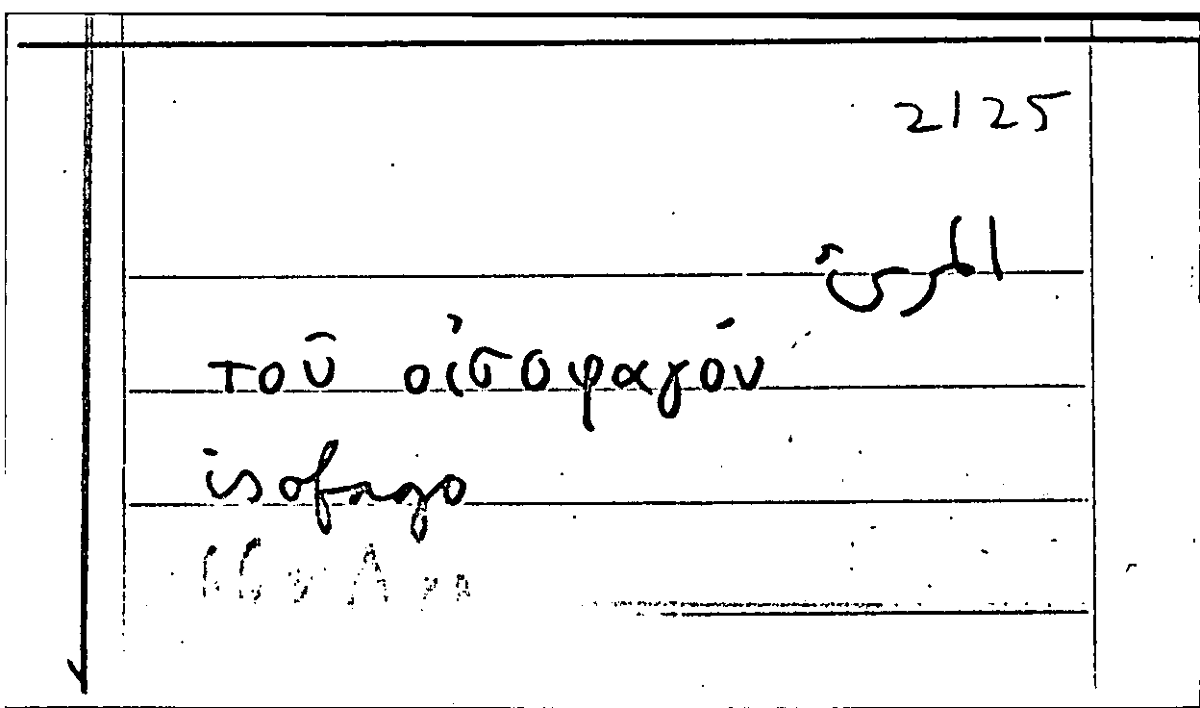 2125
المرئ
τοῦ οἰσοφαγού
isofago